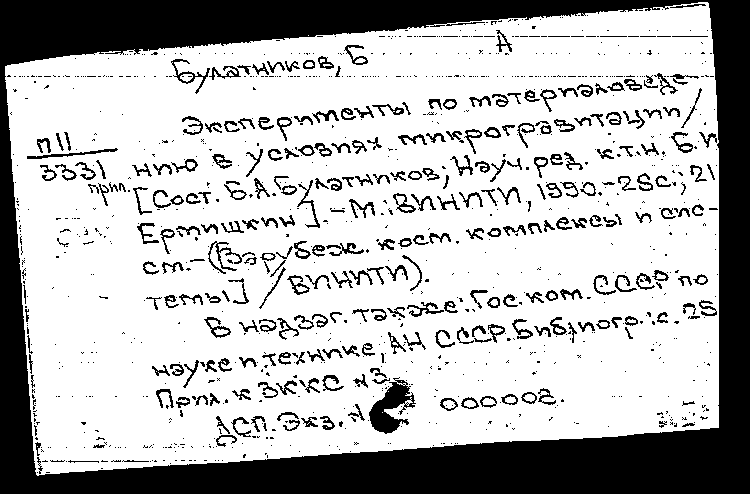 Булатников, Б
А
Эксперименты по материаловеде-
п11
3331
прил.
нию в условиях микрогравитации /
[Сост. Б.А.Булатников; Науч. ред. к.т.н. Б.И
Ермишкин]. - М.: ВИНИТИ, 1990. - 28с.; 21
см. - ([Заруbеж. косм. комплексы и сис-
темы] / ВИНИТИ).
В надзаг. также: Гос. ком. СССР по
науке и технике, АН СССР. Библиогр.: с. 28
Прил. к ЗККС №3
ДСП. Экз. №
000008.